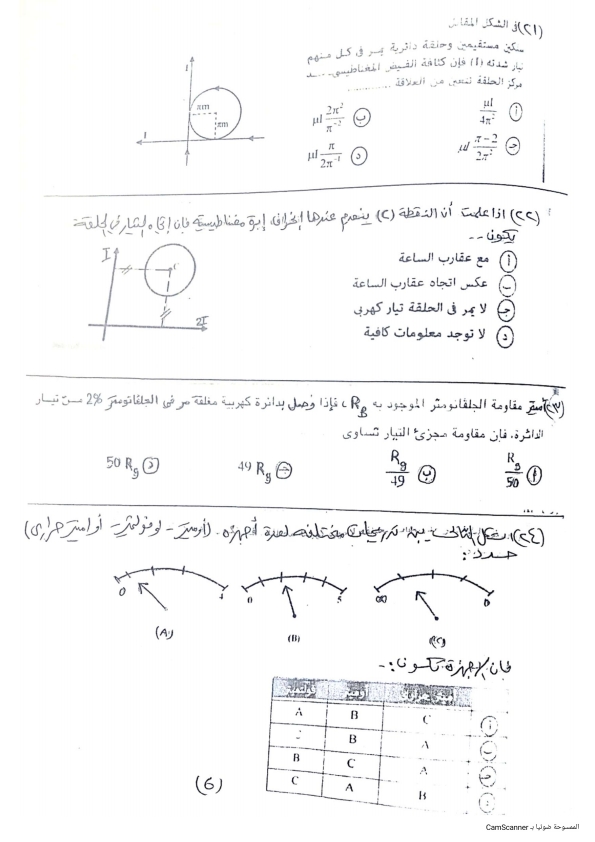 (٢١) في الشكل المقابل
سلكين مستقيمين وحلقة دائرية يمر في كل منهم
تيار شدته (I) فإن كثافة الفيض المغناطيسي عند
مركز الحلقة تتعين من العلاقة ............
أ μI/4π²
ب μI 2π²/π-2
ج μI π-2/2π²
د μI π/2π-1
I
πm
πm
I
(٢٢) اذا علمت أن النقطة (c) ينعدم عندها انحراف إبرة مغناطيسية فإن إتجاه التيار في الحلقة
يكون --
أ مع عقارب الساعة
ب عكس اتجاه عقارب الساعة
ج لا يمر فى الحلقة تيار كهربى
د لا توجد معلومات كافية
I
c
2I
(٢٣) أميتر مقاومة الجلفانومتر الموجود به Rg ، فإذا وصل بدائرة كهربية مغلقة مر في الجلفانومتر 2% من تيار
الدائرة، فإن مقاومة مجزئ التيار تساوى
أ Rg/50
ب Rg/49
ج 49 Rg
د 50 Rg
(٢٤) الشكل التالى يبين تدريجات مختلفه لعدة أجهزه (أوميتر - او فولتميتر - أو اميتر حرارى)
حدد :
0 4
(A)
0 5
(B)
∞ 0
(C)
فان الاجهزة تكون :-
أ C B A
ب A B
ج A C B
د B A C
(6)
الممسوحة ضوئيا بـ CamScanner